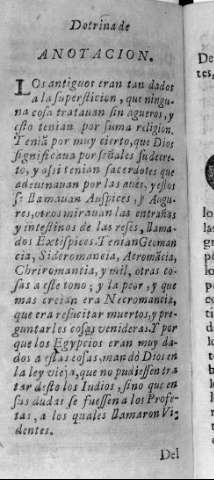 Dotrina de
ANOTACION.
LOs antiguos eran tan dados
a la supersticion, que ningu-
na cosa tratauan sin agueros, y
esto tenian por suma religion.
Teniã por muy cierto, que Dios
significaua por señales su decre-
to, y assi tenian sacerdotes que
adeuinauan por las aues, y estos
se llamauan Auspices, y Augu-
res, otros mirauan las entrañas
y intestinos de las reses, llama-
dos Extispices. Tenian Geoman
cia, Sideromancia, Aeromãcia,
Chriromantia, y mil, otras co-
sas a este tono; y la peor, y que
mas creian era Necromantia,
que era resucitar muertos, y pre-
guntarles cosas venideras. Y por
que los Egypcios eran muy da-
dos a estas cosas, mandò Dios en
la ley vieja, que no pudiessen tra
tar desto los Iudios, sino que en
sus dudas se fuessen a los Profe-
tas, a los quales llamaron Vi-
dentes.
Del